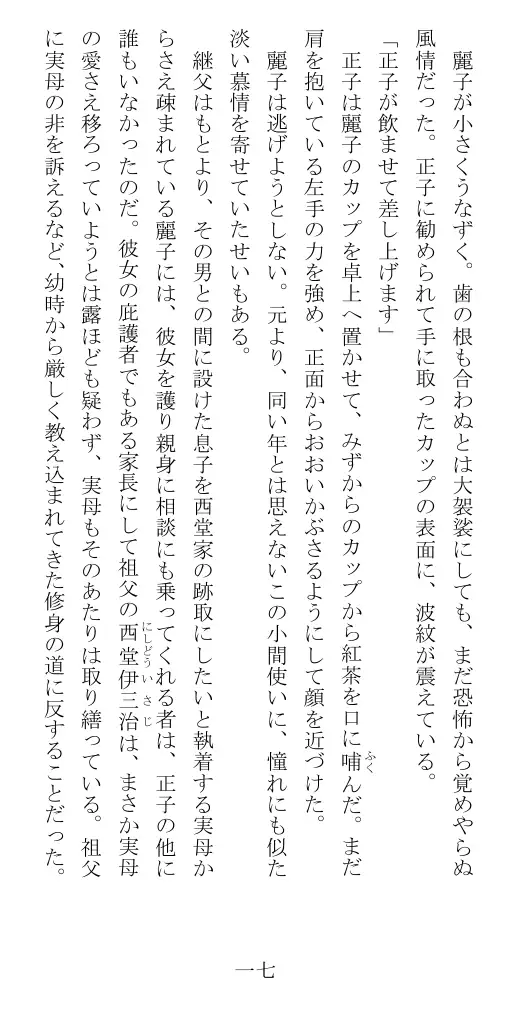 麗子が小さくうなずく。歯の根も合わぬとは大袈裟にしても、まだ恐怖から覚めやらぬ
風情だった。正子に勧められて手に取ったカップの表面に、波紋が震えている。
「正子が飲ませて差し上げます」
正子は麗子のカップを卓上へ置かせて、みずからのカップから紅茶を口に哺んだ。まだ
ふく
肩を抱いている左手の力を強め、正面からおおいかぶさるようにして顔を近づけた。
麗子は逃げようとしない。元より、同い年とは思えないこの小間使いに、憧れにも似た
淡い慕情を寄せていたせいもある。
継父はもとより、その男との間に設けた息子を西堂家の跡取にしたいと執着する実母か
らさえ疎まれている麗子には、彼女を護り親身に相談にも乗ってくれる者は、正子の他に
誰もいなかったのだ。彼女の庇護者でもある家長にして祖父の西堂伊三治は、まさか実母
にしどういさじ
の愛さえ移ろっていようとは露ほども疑わず、実母もそのあたりは取り繕っている。祖父
に実母の非を訴えるなど、幼時から厳しく教え込まれてきた修身の道に反することだった。
一七